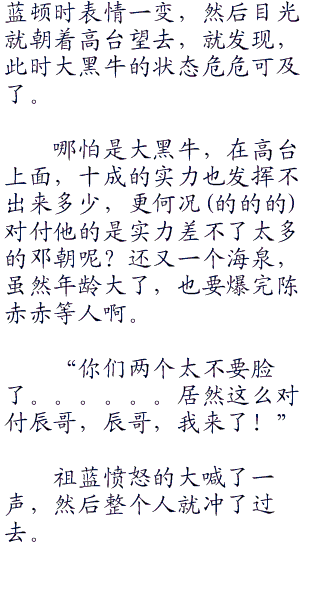 蓝顿时表情一变，然后目光
就朝着高台望去，就发现，
此时大黑牛的状态危危可及
了。
哪怕是大黑牛，在高台
上面，十成的实力也发挥不
出来多少，更何况(的的的)
对付他的是实力差不了太多
的邓朝呢？还又一个海泉，
虽然年龄大了，也要爆完陈
赤赤等人啊。
“你们两个太不要脸
了。。。。。。居然这么对
付辰哥，辰哥，我来了！”
祖蓝愤怒的大喊了一
声，然后整个人就冲了过
去。